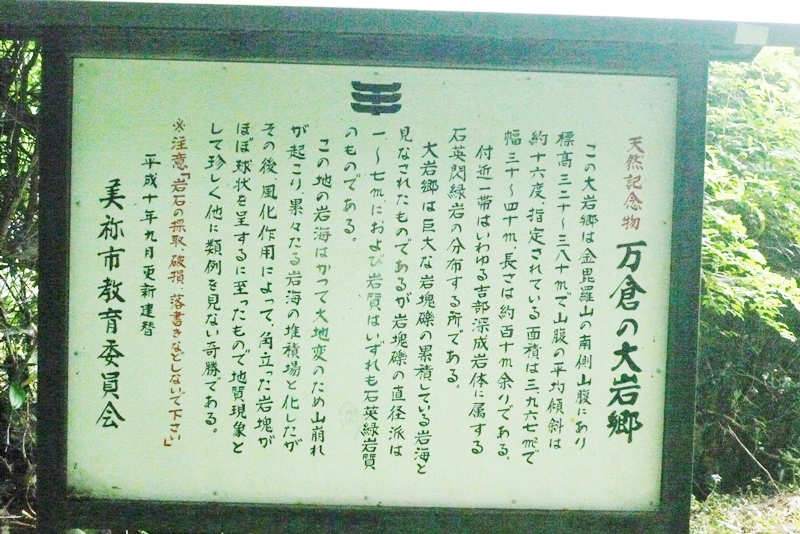 天然記念物 万倉の大岩郷
この大岩郷は金毘羅山の南側山腹にあり
標高三二十〜三八十mで山腹の平均傾斜は
約十六度、指定されている面積は三九六七㎡で
幅三十〜四十m、長さは約百十m余りである。
付近一帯はいわゆる吉部深成岩体に属する
石英閃緑岩の分布する所である。
大岩郷は巨大な岩塊礫の累積している岩海と
見なされたものであるが岩塊礫の直径派は
一〜七mにおよび岩質はいずれも石英緑岩質
のものである。
この地の岩海はかつて大地変のため山崩れ
が起こり、累々たる岩海の堆積場と化したが
その後、風化作用によって、角立った岩塊が
ほぼ球状を呈するに至ったもので地質現象と
して珍しく他に類例を見ない奇勝である。
※注意「岩石の採取、破損、落書きなどしないで下さい」
平成十年九月更新建替
美祢市教育委員会